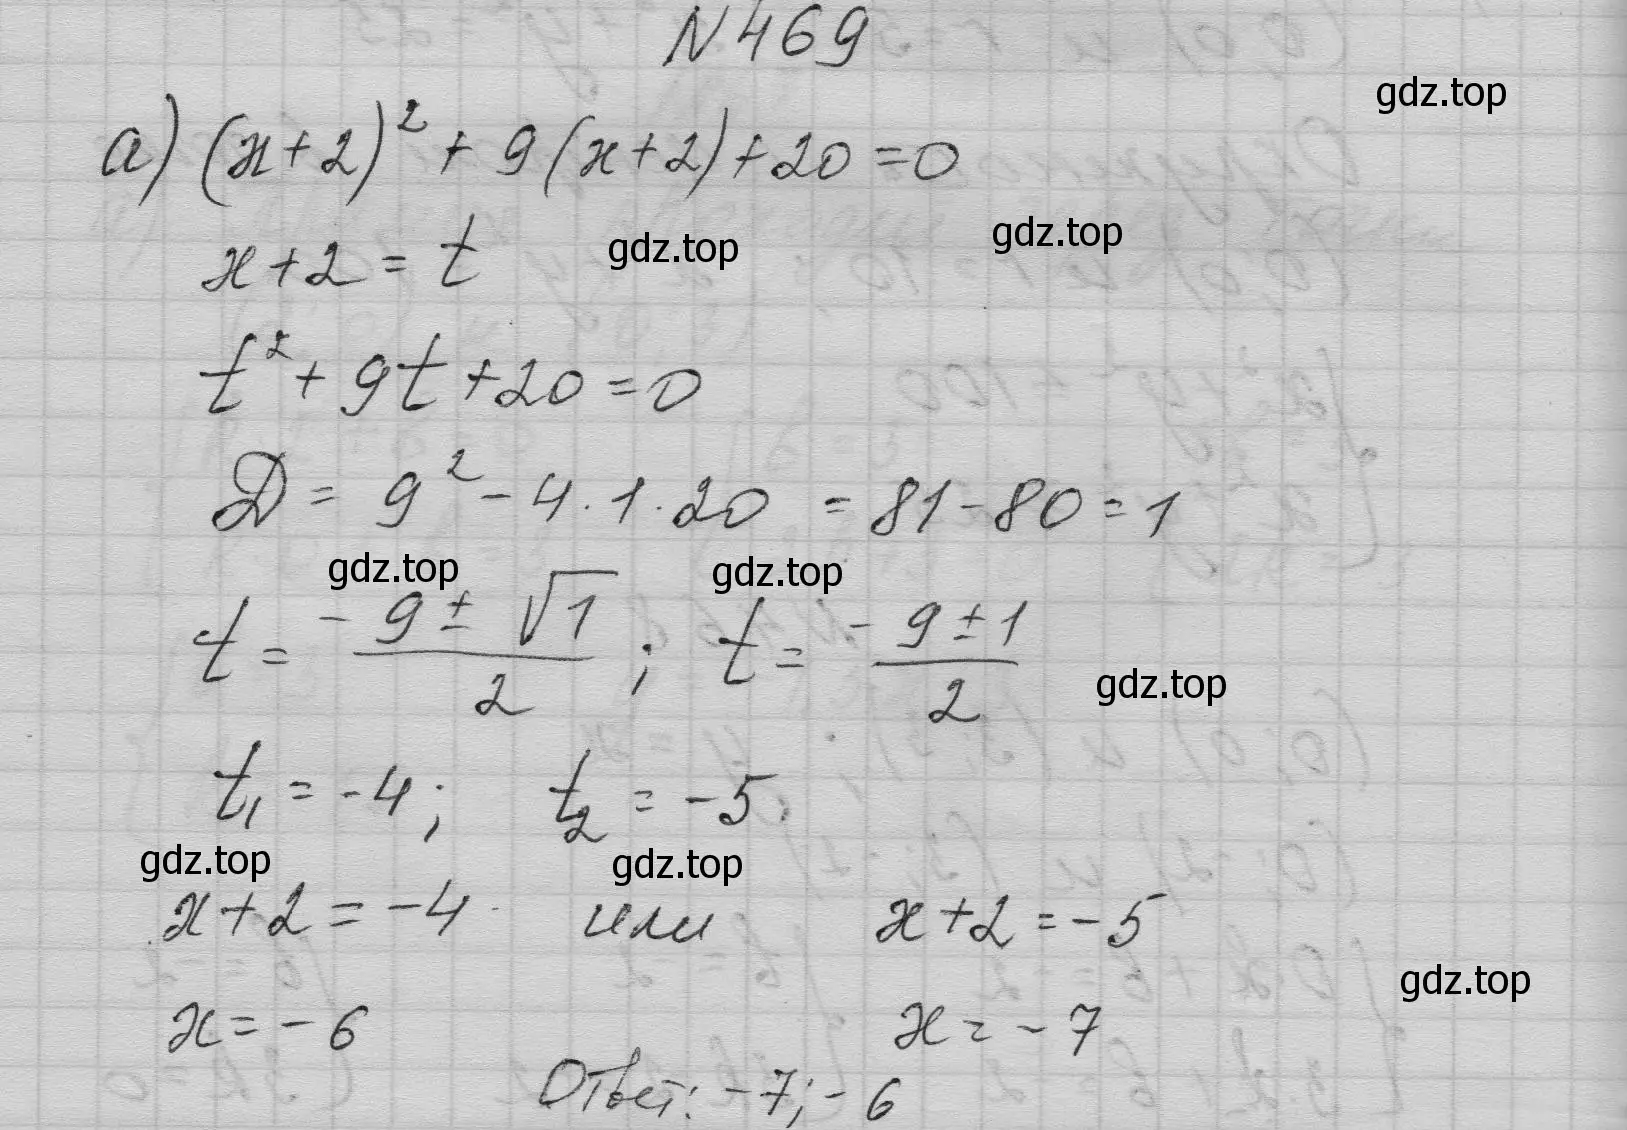 N469
gdz.top
а) (x+2)² + 9(x+2)+20=0
x+2=t
gdz.top
gdz.top
t²+9t+20=0
Д = 9²-4·1·20 = 81-80=1
gdz.top
gdz.top
t = (-9±√1)/2 ; t = (-9±1)/2
gdz.top
t₁ = -4; t₂ = -5.
gdz.top
gdz.top
x+2 = -4 или x+2 = -5
gdz.top
x = -6 x = -7
Ответ: -7; -6